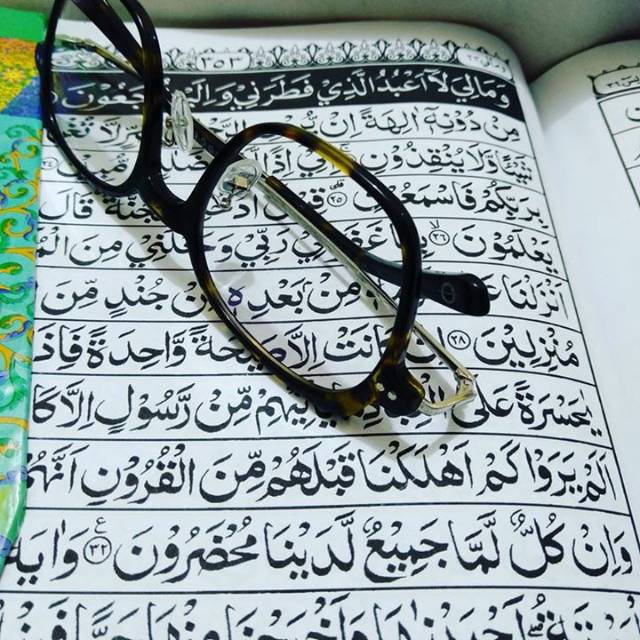 ٣٥٣
وَمَالِيَ لَآ اَعْبُدُ الَّذِيْ فَطَرَنِيْ وَاِلَيْهِ تُرْجَعُوْنَ
مِنْ دُوْنِهٖٓ اٰلِهَةً اِنْ
شَيْـًٔا وَّلَا يُنْقِذُوْنِ اِنِّيْ اِذًا مُّبِيْنٍ
بِرَبِّكُمْ فَاسْمَعُوْنِ ۲۵ قِيْلَ ادْخُلِ الْجَنَّةَ قَالَ
يَعْلَمُوْنَ ۲۶ بِمَا غَفَرَ لِيْ رَبِّيْ وَجَعَلَنِيْ مِنَ
اَنْزَلْنَا مِنْۢ بَعْدِهٖ مِنْ جُنْدٍ مِّنَ
مُنْزِلِيْنَ ۲۸ اِنْ كَانَتْ اِلَّا صَيْحَةً وَّاحِدَةً
يٰحَسْرَةً عَلَى الْعِبَادِ يَاْتِيْهِمْ مِّنْ رَّسُوْلٍ اِلَّا كَا
اَلَمْ يَرَوْا كَمْ اَهْلَكْنَا قَبْلَهُمْ مِّنَ الْقُرُوْنِ اَنَّهُمْ
وَاِنْ كُلٌّ لَّمَّا جَمِيْعٌ لَّدَيْنَا مُحْضَرُوْنَ ۳۲ وَاٰيَةٌ